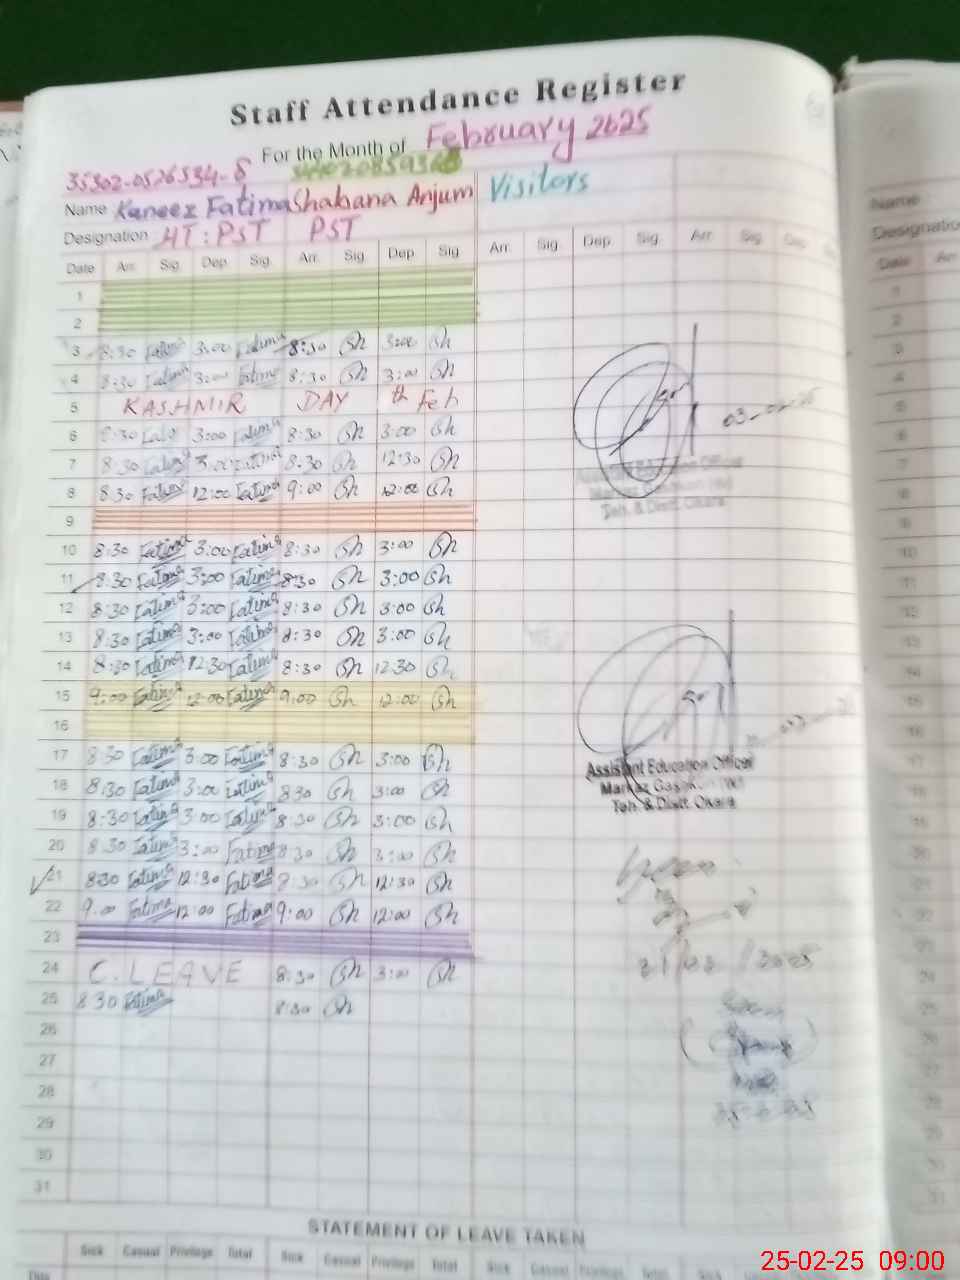 Staff Attendance Register
For the Month of February 2025
35302-0526534-8
Name Kaneez Fatima Shabana Anjum Visitors
Designation HT: PST PST
Date Arr. Sig. Dep. Sig. Arr. Sig. Dep Sig. Arr. Sig. Dep. Sig. Arr. Sig. Dep
1
2
3 8:30 Fatima 3:00 Fatima 8:30 Sh 3:00 Sh
4 8:30 Fatima 3:00 Fatima 8:30 Sh 3:00 Sh
5 KASHMIR DAY th Feb
6 8:30 3:00 Fatima 8:30 Sh 3:00 Sh
7 8:30 Fatima 3:00 Fatima 8:30 Sh 12:30 Sh
8 8:30 Fatima 12:00 Fatima 9:00 Sh 12:00 Sh
9
10 8:30 Fatima 3:00 Fatima 8:30 Sh 3:00 Sh
11 8:30 Fatima 3:00 Fatima 8:30 Sh 3:00 Sh
12 8:30 Fatima 3:00 Fatima 8:30 Sh 3:00 Sh
13 8:30 Fatima 3:00 Fatima 8:30 Sh 3:00 Sh
14 8:30 Fatima 12:30 Fatima 8:30 Sh 12:30 Sh
15 9:00 Fatima 12:00 Fatima 9:00 Sh 12:00 Sh
16
17 8:30 Fatima 3:00 Fatima 8:30 Sh 3:00 Sh
18 8:30 Fatima 3:00 Fatima 8:30 Sh 3:00 Sh
19 8:30 Fatima 3:00 Fatima 8:30 Sh 3:00 Sh
20 8:30 Fatima 3:00 Fatima 8:30 Sh 3:00 Sh
21 8:30 Fatima 12:30 Fatima 8:30 Sh 12:30 Sh
22 9:00 Fatima 12:00 Fatima 9:00 Sh 12:00 Sh
23
24 C. LEAVE 8:30 Sh 3:00 Sh
25 8:30 Fatima 8:30 Sh
26
27
28
29
30
31
Assistant Education Officer
Teh. & Distt. Okara
Assistant Education Officer
Markaz
Teh. & Distt. Okara
STATEMENT OF LEAVE TAKEN
Sick Casual Privilege Total Sick Casual Privilege Total Sick Casual Privilege Total Sick Casual
Name
Designation
Date Arr
25-02-25 09:00